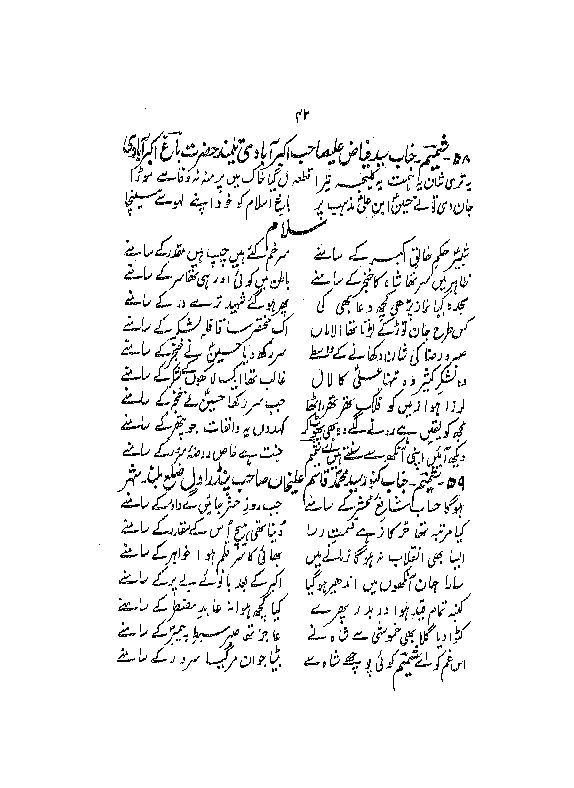 ۴۲
۵۸ - شمیم - جناب سید فیاض علیصاحب اکبرآبادی تلمیذ حضرت باغ اکبرآبادی
یہ تری شان یہ ہمت یہ کلیجہ تیرا قطعہ مل گیا خاک میں پر منہ نہ وفا سے موڑا
جان دی تو نے حسین ابن علی مذہب پر باغ اسلام کو خود اپنے لہو سے سینچا
سلام
شبیر حکم خالق اکبر کے سامنے سر خم کئے ہیں چپ ہیں مقدر کے سامنے
ظاہر میں سر تھا شاہ کا خنجر کے سامنے باطن میں کوئی اور ہی تھا سر کے سامنے
سجدہ کیا نماز پڑھی کچھ دعا بھی کی پھر ہو گئے شہید ترے در کے سامنے
کس طرح جان توڑ کے لڑتا تھا الاماں اک مختصر سا قافلہ لشکر کے سامنے
صبر و رضا کی شان دکھانے کے واسطے سر رکھ دیا حسین نے خنجر کے سامنے
وہ لشکر کثیر وہ تنہا علی کا لال غالب تھا ایک لاکھوں کے لشکر کے سامنے
لرزا ہوا زمیں کو فلک تھرتھرا اٹھا جب سر رکھا حسین نے خنجر کے سامنے
مجھ کو یقیں ہے رونے لگے وہ بھی پھوٹ کر کہدوں یہ واقعات جو پتھر کے سامنے
دیکھ آئیں اپنی آنکھ سے سنتے ہیں شمیم جنت ہے خاص روضۂ سرور کے سامنے
۵۹ - شمیم - جناب کنور سید محمد قاسم علیخاں صاحب پنڈراول ضلع بلند شہر
ہوگا حساب شافع محشر کے سامنے جب روز حشر جائیں گے داور کے سامنے
کیا مرتبہ تھا حر کا زہے قسمت رسا دنیا تھی ہیچ اُس کے مقدر کے سامنے
ایسا بھی انقلاب نہ ہوگا زمانے میں بھائی کا سر قلم ہوا خواہر کے سامنے
سارا جہان آنکھوں میں اندھیر ہوگیا اکبر کے بعد بانوئے بے پر کے سامنے
کنبہ تمام قید ہوا در بدر پھرے کیا کچھ ہوا نہ عابد مضطر کے سامنے
کٹوا دیا گلا بھی خموشی سے شاہ نے عاجز تھا صبر سبط پیمبر کے سامنے
اس غم کو اے شمیم کوئی پوچھے شاہ سے بیٹا جوان مر گیا سرور کے سامنے